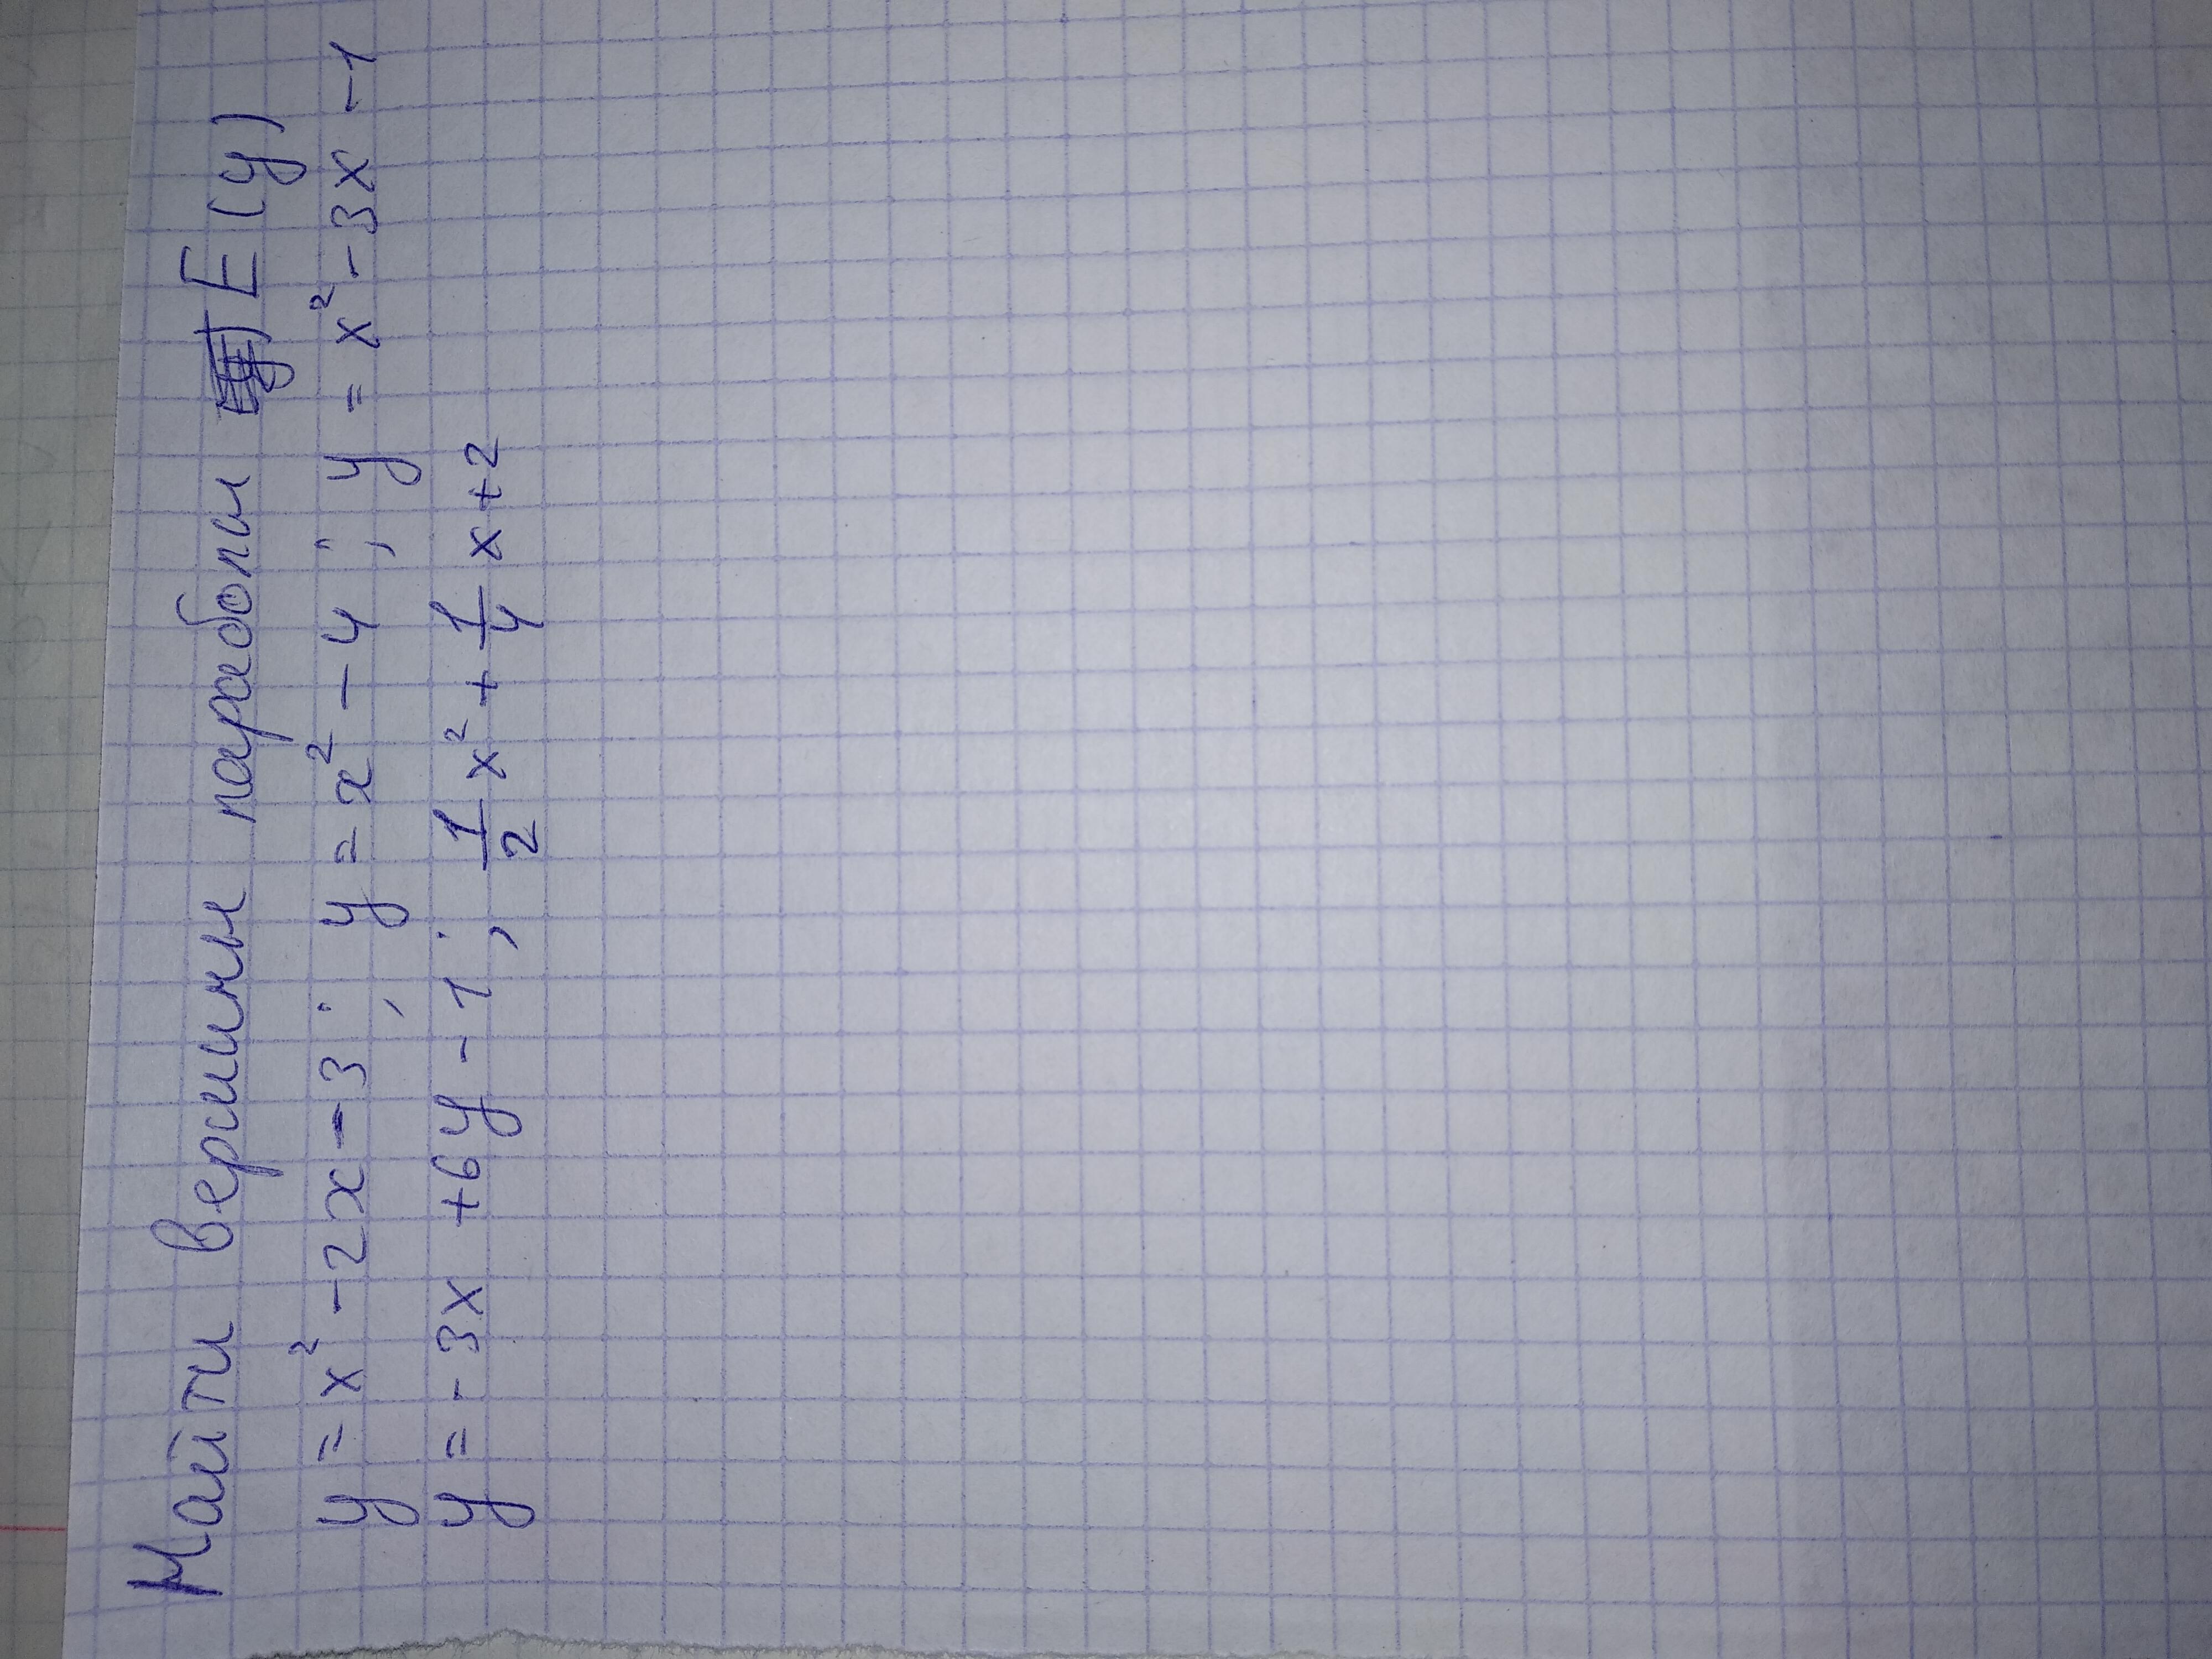 Найти вершины параболы E(y)
y = x² - 2x - 3; y = x² - 4; y = x² - 3x - 1
y = - 3x + 6y - 1; 1/2 x² + 1/4 x + 2